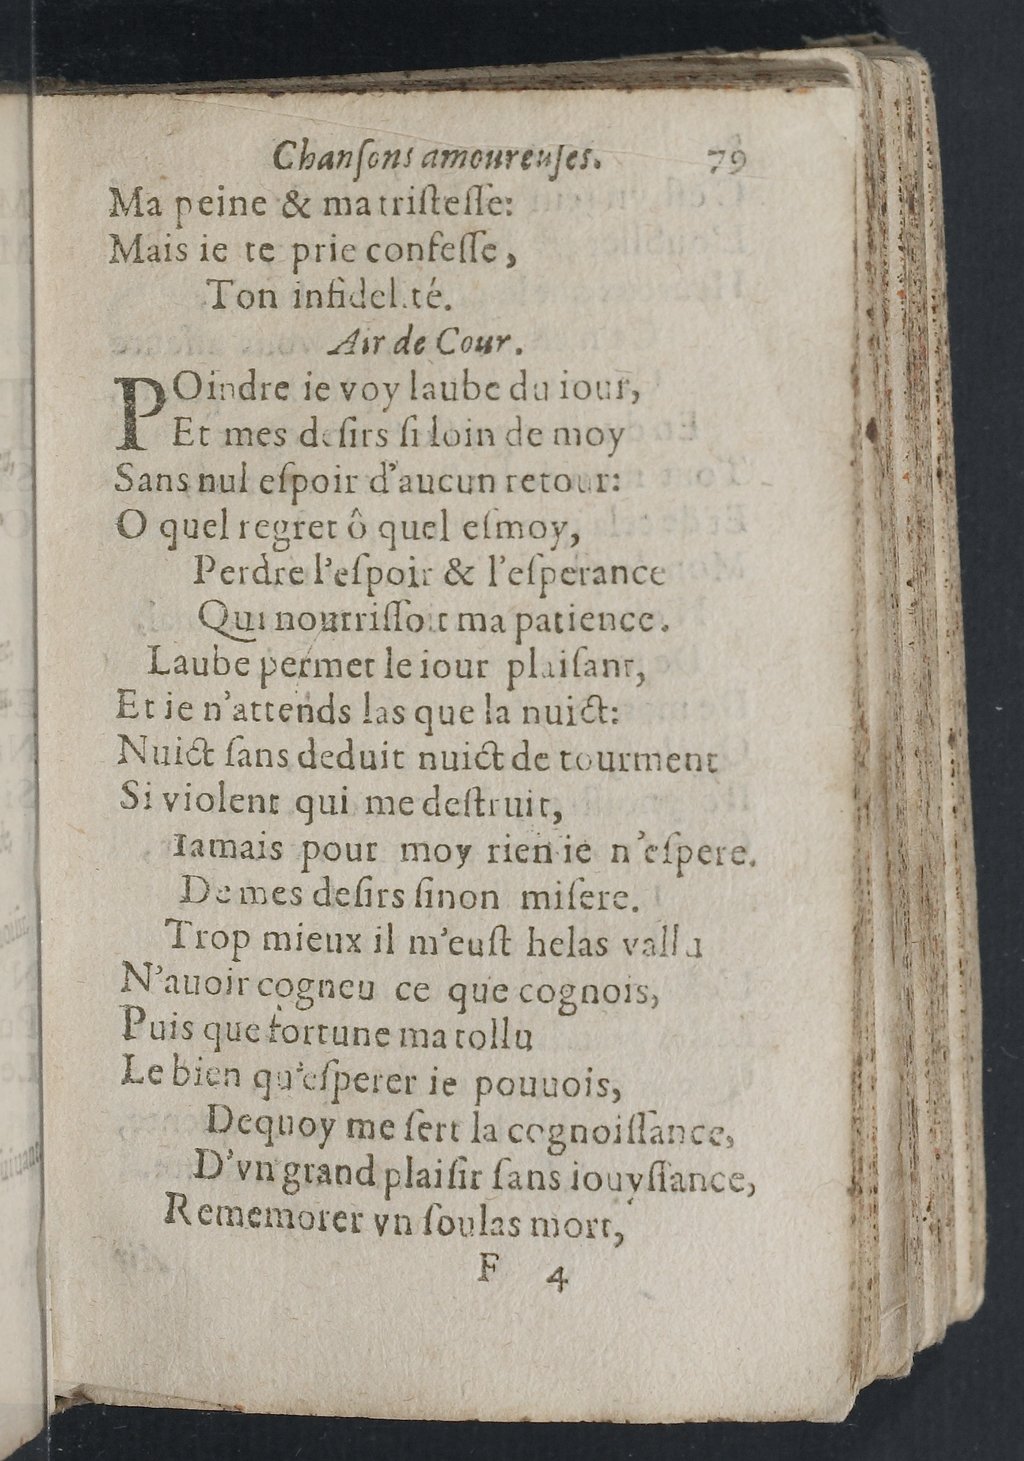 Chanſons amoureuſes. 79
Ma peine & ma triſteſſe:
Mais ie te prie confeſſe,
Ton infidelité.
Air de Cour.
POindre ie voy laube du iour,
Et mes deſirs ſi loin de moy
Sans nul eſpoir d'aucun retour:
O quel regret ô quel eſmoy,
Perdre l'eſpoir & l'eſperance
Qui nourriſſoit ma patience.
Laube permet le iour plaiſant,
Et ie n'attends las que la nuict:
Nuict ſans deduit nuict de tourment
Si violent qui me deſtruit,
Iamais pour moy rien ie n'eſpere.
De mes deſirs ſinon miſere.
Trop mieux il m'euſt helas vallu
N'auoir cogneu ce que cognois,
Puis que fortune ma tollu
Le bien qu'eſperer ie pouuois,
Dequoy me ſert la cognoiſſance,
D'vn grand plaiſir ſans iouyſſance,
Rememorer vn ſoulas mort,
F 4